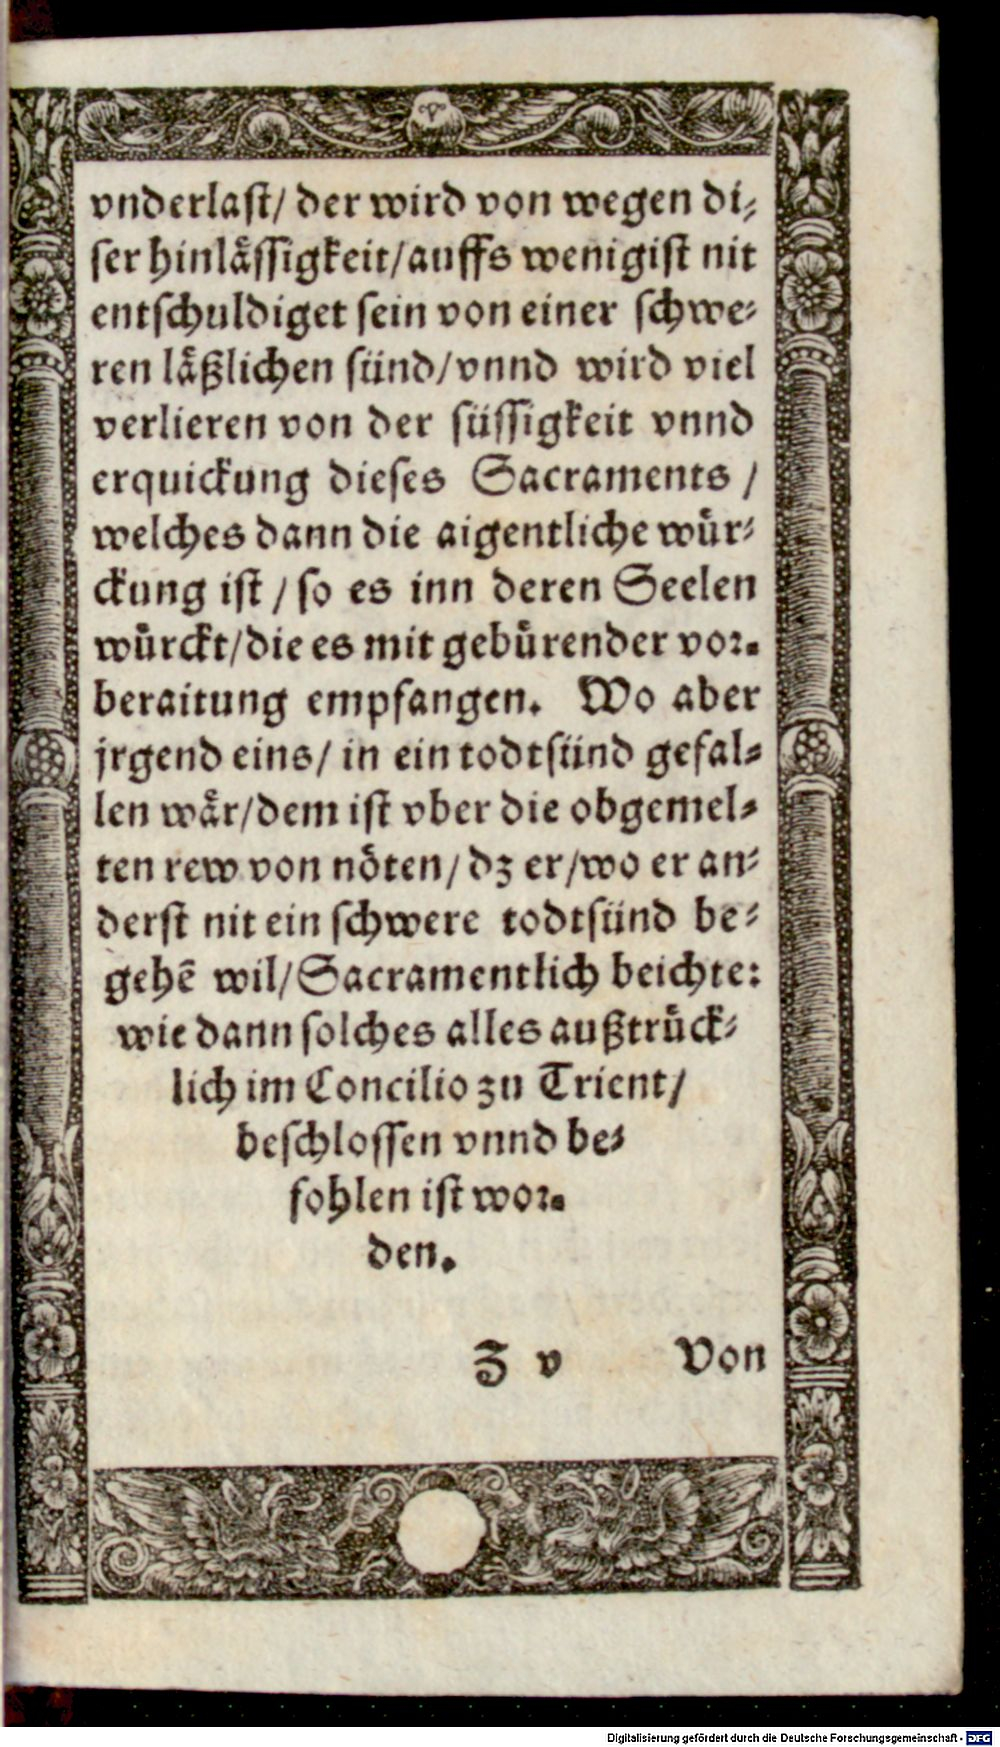 vnderlast/ der wird von wegen di-
ser hinlässigkeit/auffs wenigist nit
entschuldiget sein von einer schwe-
ren läßlichen sünd/vnnd wird viel
verlieren von der süssigkeit vnnd
erquickung dieses Sacraments /
welches dann die aigentliche wür-
ckung ist / so es inn deren Seelen
würckt/die es mit gebürender vor-
beraitung empfangen. Wo aber
jrgend eins/ in ein todtsünd gefal-
len wär/dem ist vber die obgemel-
ten rew von nöten/ dz er/wo er an-
derst nit ein schwere todtsünd be-
gehē wil/Sacramentlich beichte:
wie dann solches alles außtrück-
lich im Concilio zu Trient/
beschlossen vnnd be-
fohlen ist wor-
den.
Z v Von
Digitalisierung gefördert durch die Deutsche Forschungsgemeinschaft - DFG